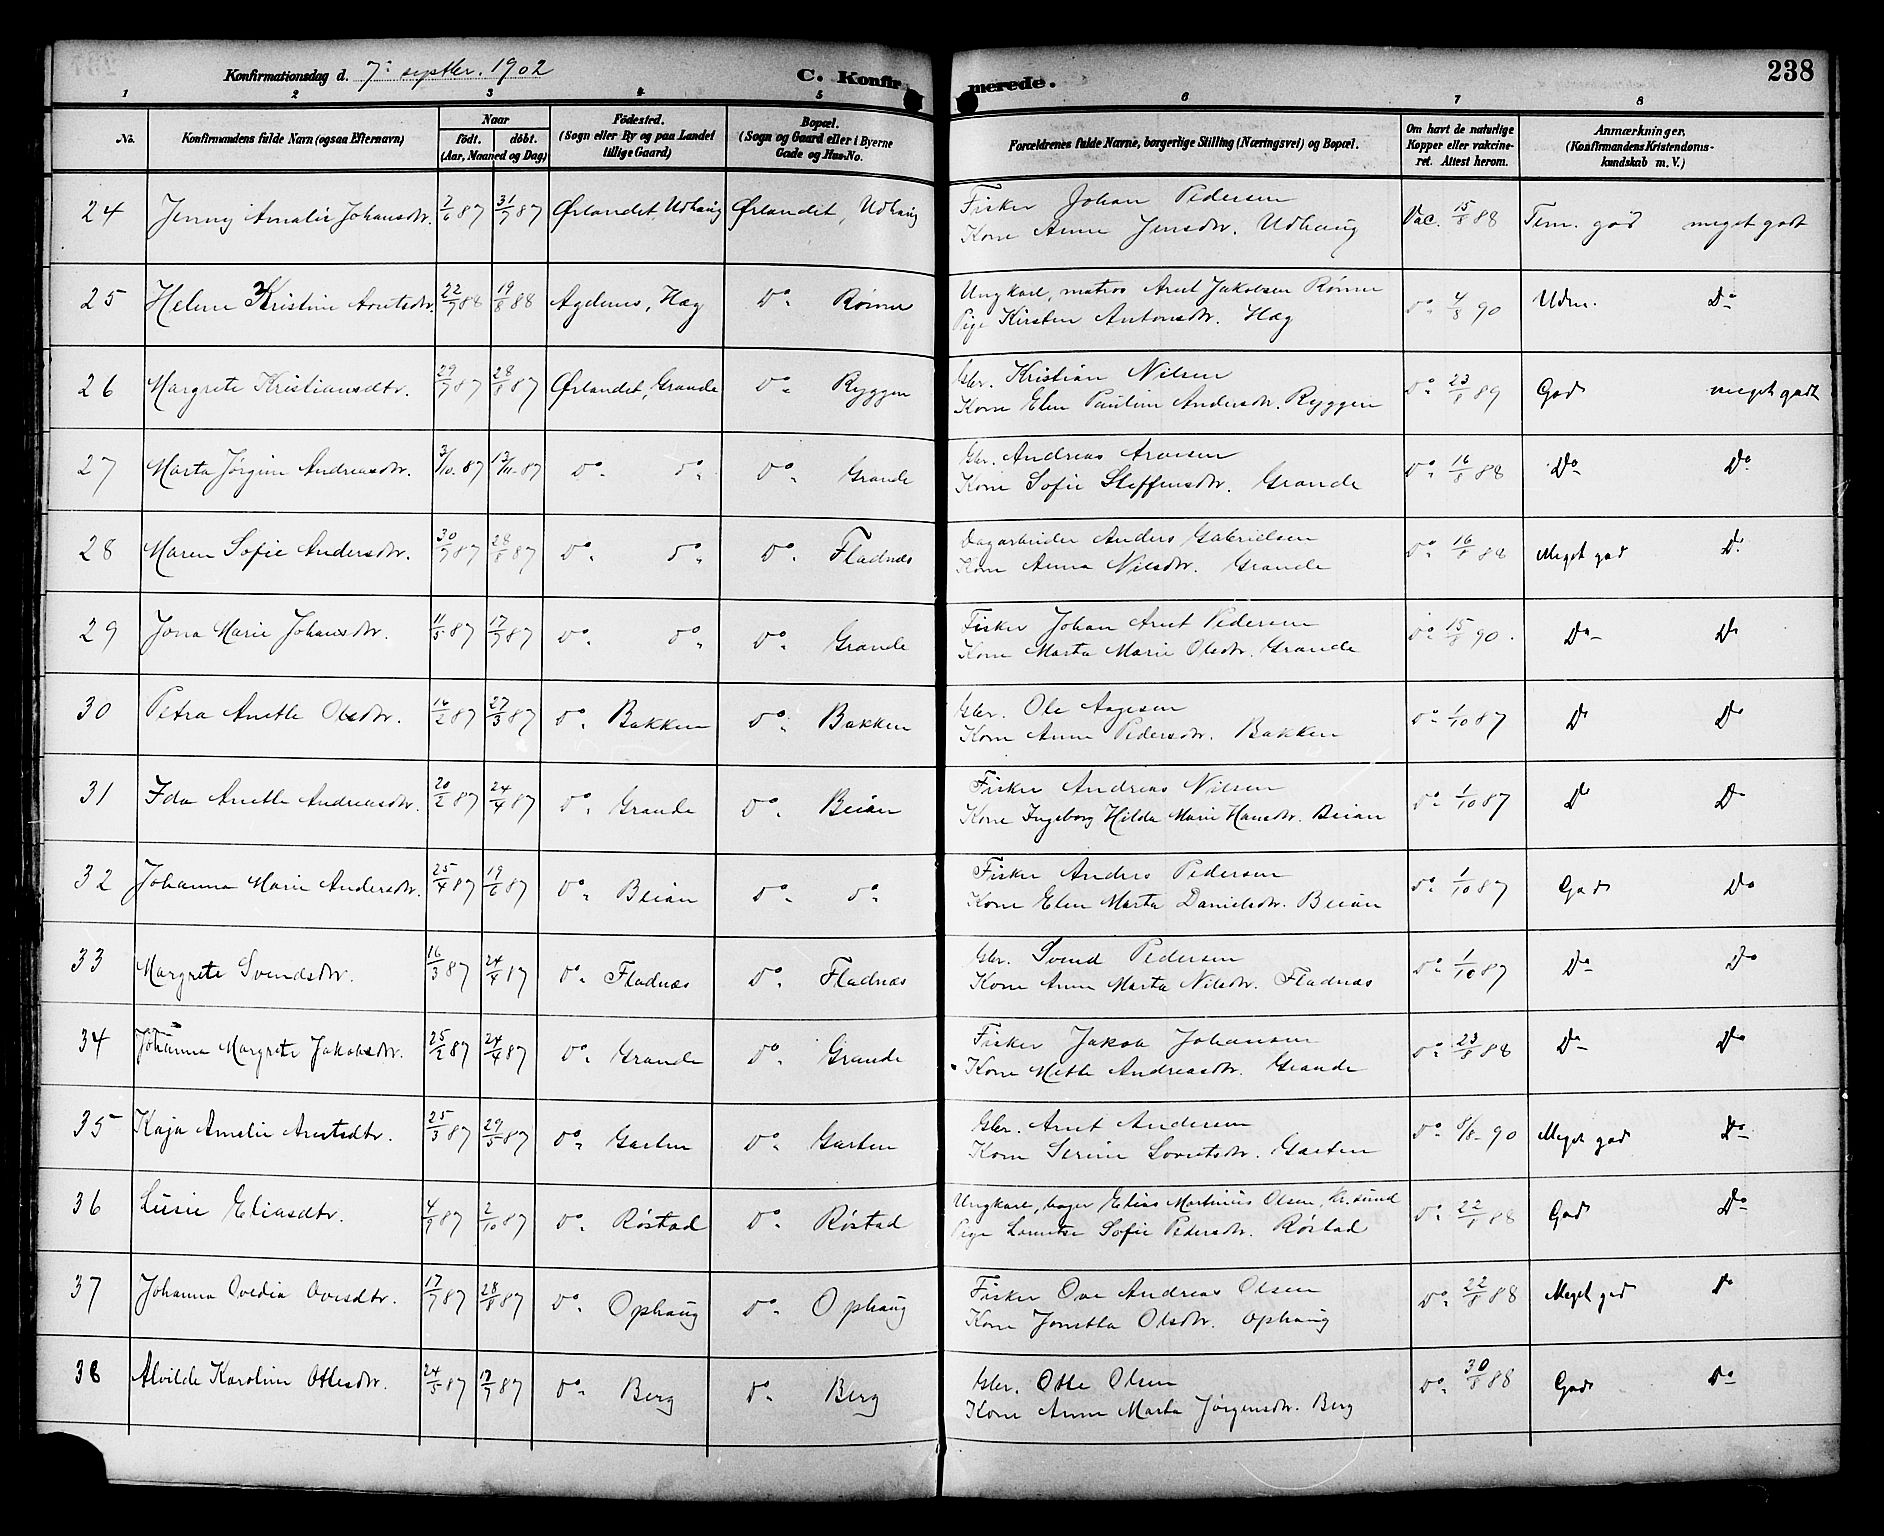 Konfirmationsdag d. 7de septbr. 1902
C. Konfirmerede.
238
1 2 3 4 5 6 7 8
No. Konfirmandens fulde Navn (ogsaa Efternavn) Naar født. døbt. (Aar, Maaned og Dag) Fødested. (Sogn eller By og paa Landet tillige Gaard) Bopæl. (Sogn og Gaard eller i Byerne Gade og Hus-No. Forældrenes fulde Navne, borgerlige Stilling (Næringsvei) og Bopæl. Om havt de naturlige Kopper eller vakcineret. Attest herom. Anmærkninger, (Konfirmandens Kristendomskundskab m. V.)
24 Jenny Amalie Johansdtr. 2/6 87 31/7 87 Ørlandet, Udhaug Ørlandet, Udhaug Fisker Johan Pedersen
Kone Anne Jensdtr. Udhaug Vac. 15/8 88 Tem. god meget godt
25 Helene Kristine Arntsdtr. 22/7 88 19/8 88 Agdenes, Hæg Do. Rønne Ungkarl, matros Arnt Jakobsen Rønne
Pige Kirsten Antonsdtr. Hæg do. 4/8 90 Udm. Do
26 Margrete Kristiansdtr. 29/7 87 28/8 87 Ørlandet, Grande Do. Ryggen Gbr. Kristian Nilsen
Kone Elen Pauline Andersdtr. Ryggen do. 23/8 89 God meget godt
27 Marta Jørgine Andreasdtr. 3/10 87 13/11 87 Do. do. Do. Grande Gbr. Andreas Arnesen
Kone Sofie Steffensdtr. Grande do. 16/8 88 Do. Do.
28 Maren Sofie Andersdtr. 30/7 87 28/8 87 Do. do. Do. Fladnes Dagarbeider Anders Gabrielsen
Kone Anna Nilsdtr. Grande do. 16/8 88 Meget god Do.
29 Jona Marie Johansdtr. 11/5 87 17/7 87 Do. do. Do. Grande Fisker Johan Arnt Pedersen
Kone Marta Marie Olsdtr. Grande do. 15/8 90. Do. Do
30 Petra Anette Olsdtr. 16/2 87 27/3 87 Do. Bakken Do. Bakken Gbr. Ole Aagesen
Kone Anne Pedersdtr. Bakken do. 1/10 87 Do Do
31 Ida Anette Andreasdtr. 20/2 87 24/4 87 Do. Grande Do. Beian Fisker Andreas Nilsen
Kone Ingeborg Hilda Marie Hansdtr. Beian do. 1/10 87 Do Do
32 Johanna Marie Andersdtr. 25/4 87 19/6 87 Do. Beian Do. do. Fisker Anders Pedersen
Kone Elen Marta Danielsdtr. Beian do. 1/10 87 God Do
33 Margrete Svendsdtr. 16/3 87 24/4 87 Do. Fladnæs Do. Fladnæs Gbr. Svend Pedersen
Kone Anne Marta Nilsdtr. Fladnæs do. 1/10 87 Do. Do
34 Johanna Margrete Jakobsdtr. 25/2 87 24/4 87 Do. Grande Do. Grande Fisker Jakob Johansen
Kone Mette Andreasdtr. Grande do. 23/8 88 Do. Do
35 Kaja Amalie Arntsdtr. 25/3 87 29/5 87 Do. Garten Do. Garten Gbr. Arnt Andersen
Kone Serine Lorntsdtr. Garten do. 8/8 90 Meget god Do.
36 Lusie Eliasdtr. 4/9 87 2/10 87 Do. Røstad Do. Røstad Ungkarl, bager Elias Martinius Olsen, Kr.sund
Pige Lorntse Sofie Pedersdtr. Røstad do. 22/8 88 God Do.
37 Johanna Ovedia Ovesdtr. 17/7 87 28/8 87 Do. Ophaug Do. Ophaug Fisker Ove Andreas Olsen
Kone Jonetta Olsdtr. Ophaug do. 22/8 88 Meget god Do
38 Alvilde Karoline Ottesdtr. 24/5 87 17/7 87 Do. Berg Do. Berg Gbr. Otte Olsen
Kone Anne Marta Jørgensdtr. Berg do. 30/8 88 God Do.